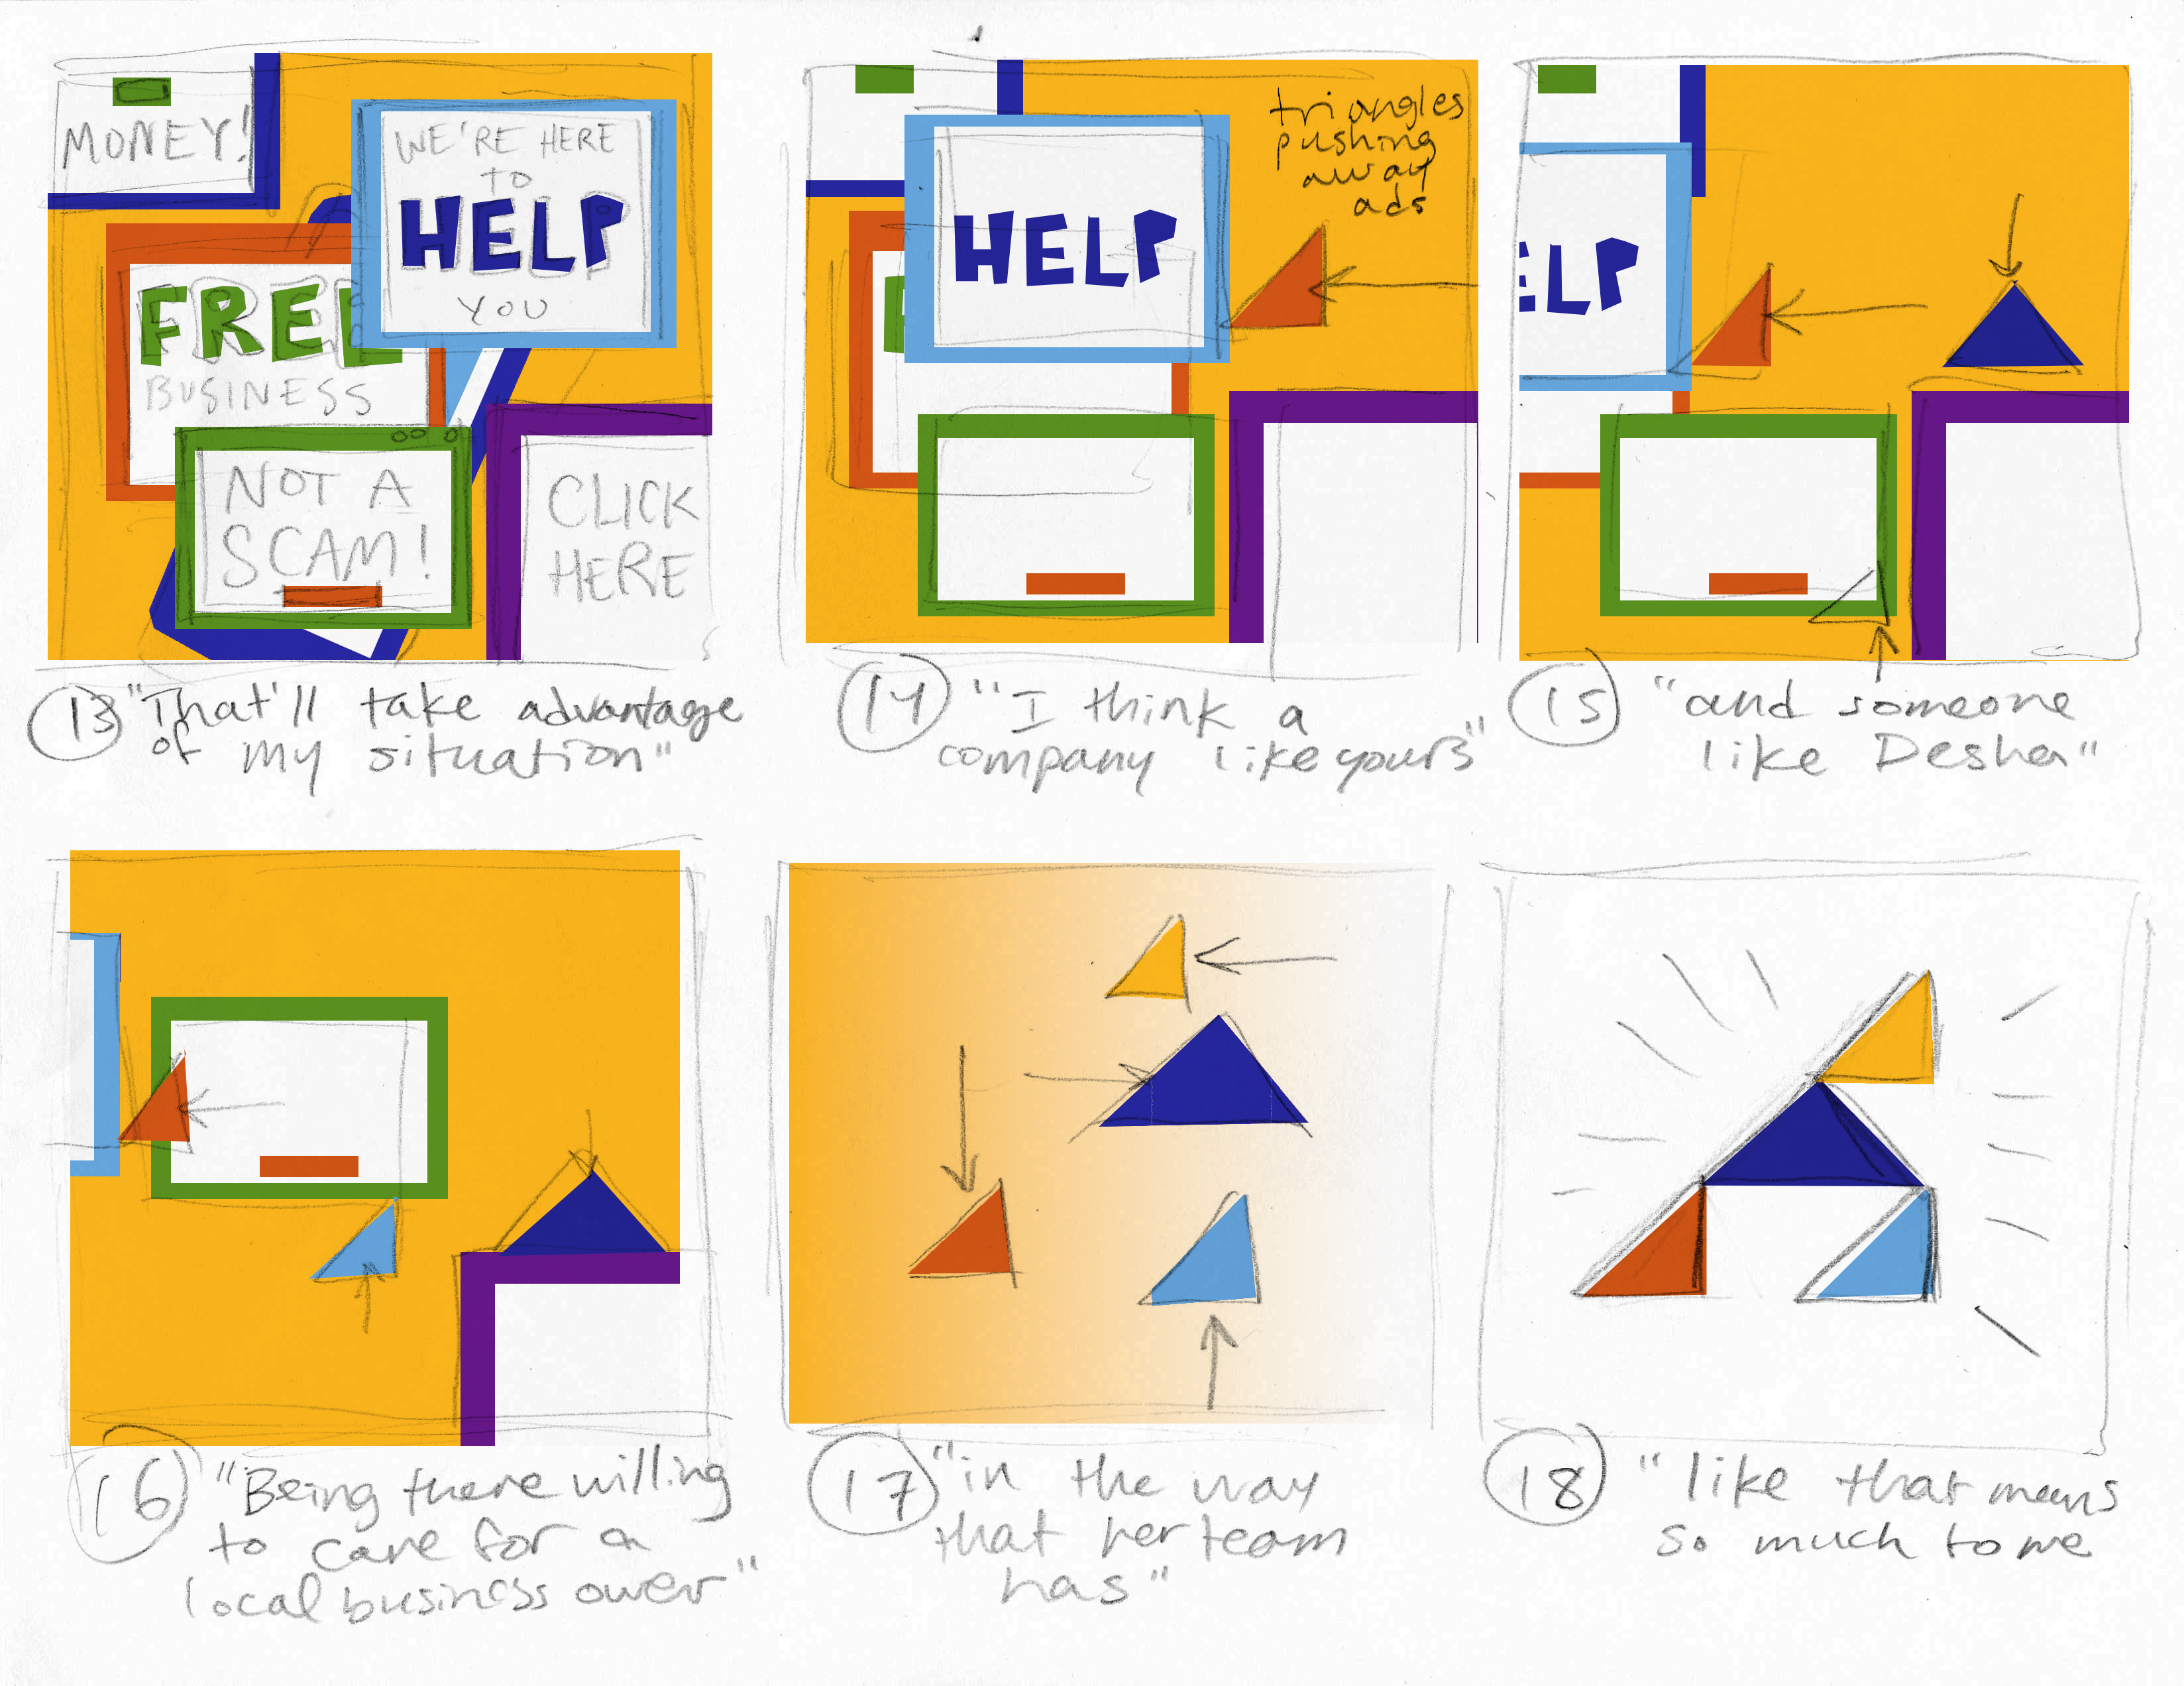 MONEY!
WE'RE HERE
TO
HELP
YOU
FREE
BUSINESS
NOT A
SCAM!
CLICK
HERE
13 "That'll take advantage
of my situation"
HELP
F
triangles
pushing
away
ads
14 "I think a
company like yours"
ELP
15 "and someone
like Desha"
16 "Being there willing
to care for a
local business ower"
17 "in the way
that her team
has"
18 "like that means
so much to me